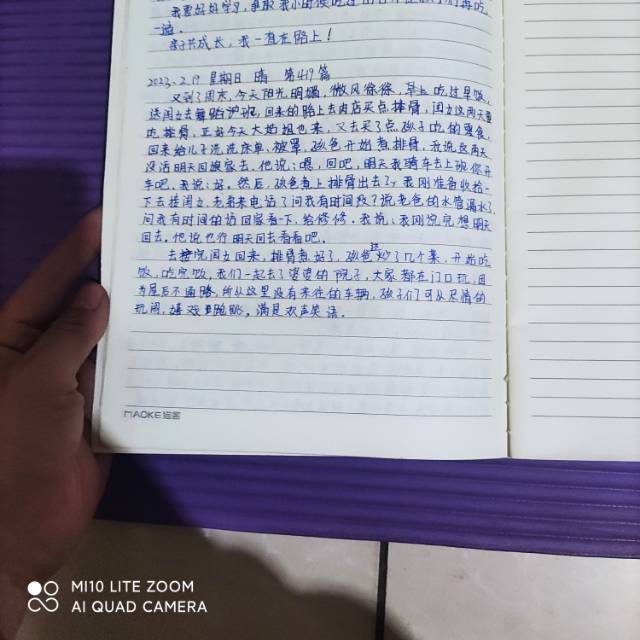 我要好好学习，争取我小时候
一遍。
亲子共成长，我一直在路上！
2023.2.19 星期日 晴 第419篇
又到了周末，今天阳光明媚，微风徐徐，早上吃过早饭，
送闺女去舞蹈班，回来的路上去肉店买点排骨，闺女这两天要
吃排骨，正好今天大姑姐也来，又去买了点孩子吃的零食，
回来给儿子洗洗床单、被罩，孩爸开始煮排骨，我说这两天
没活明天回娘家去，他说：嗯，回吧，明天我骑车去上班你开
车吧，我说：好。然后，孩爸煮上排骨出去了，我刚准备收拾一
下去接闺女，老爸来电话了问我有时间没？说老爸的水管漏水了，
问我有时间的话回家看一下，给修修，我说：我刚说完想明天
回去，他说也行明天回去看看吧。
去接完闺女回来，排骨煮好了，孩爸还炒了几个菜，开始吃
饭，吃完饭，我们一起去了婆婆的院子，大家都在门口玩，因
为屋后不通路，所以这里没有来往的车辆，孩子们可以尽情的
玩闹，嬉戏跑跳，满是欢声笑语。
MAOKE 猫客
MI10 LITE ZOOM
AI QUAD CAMERA